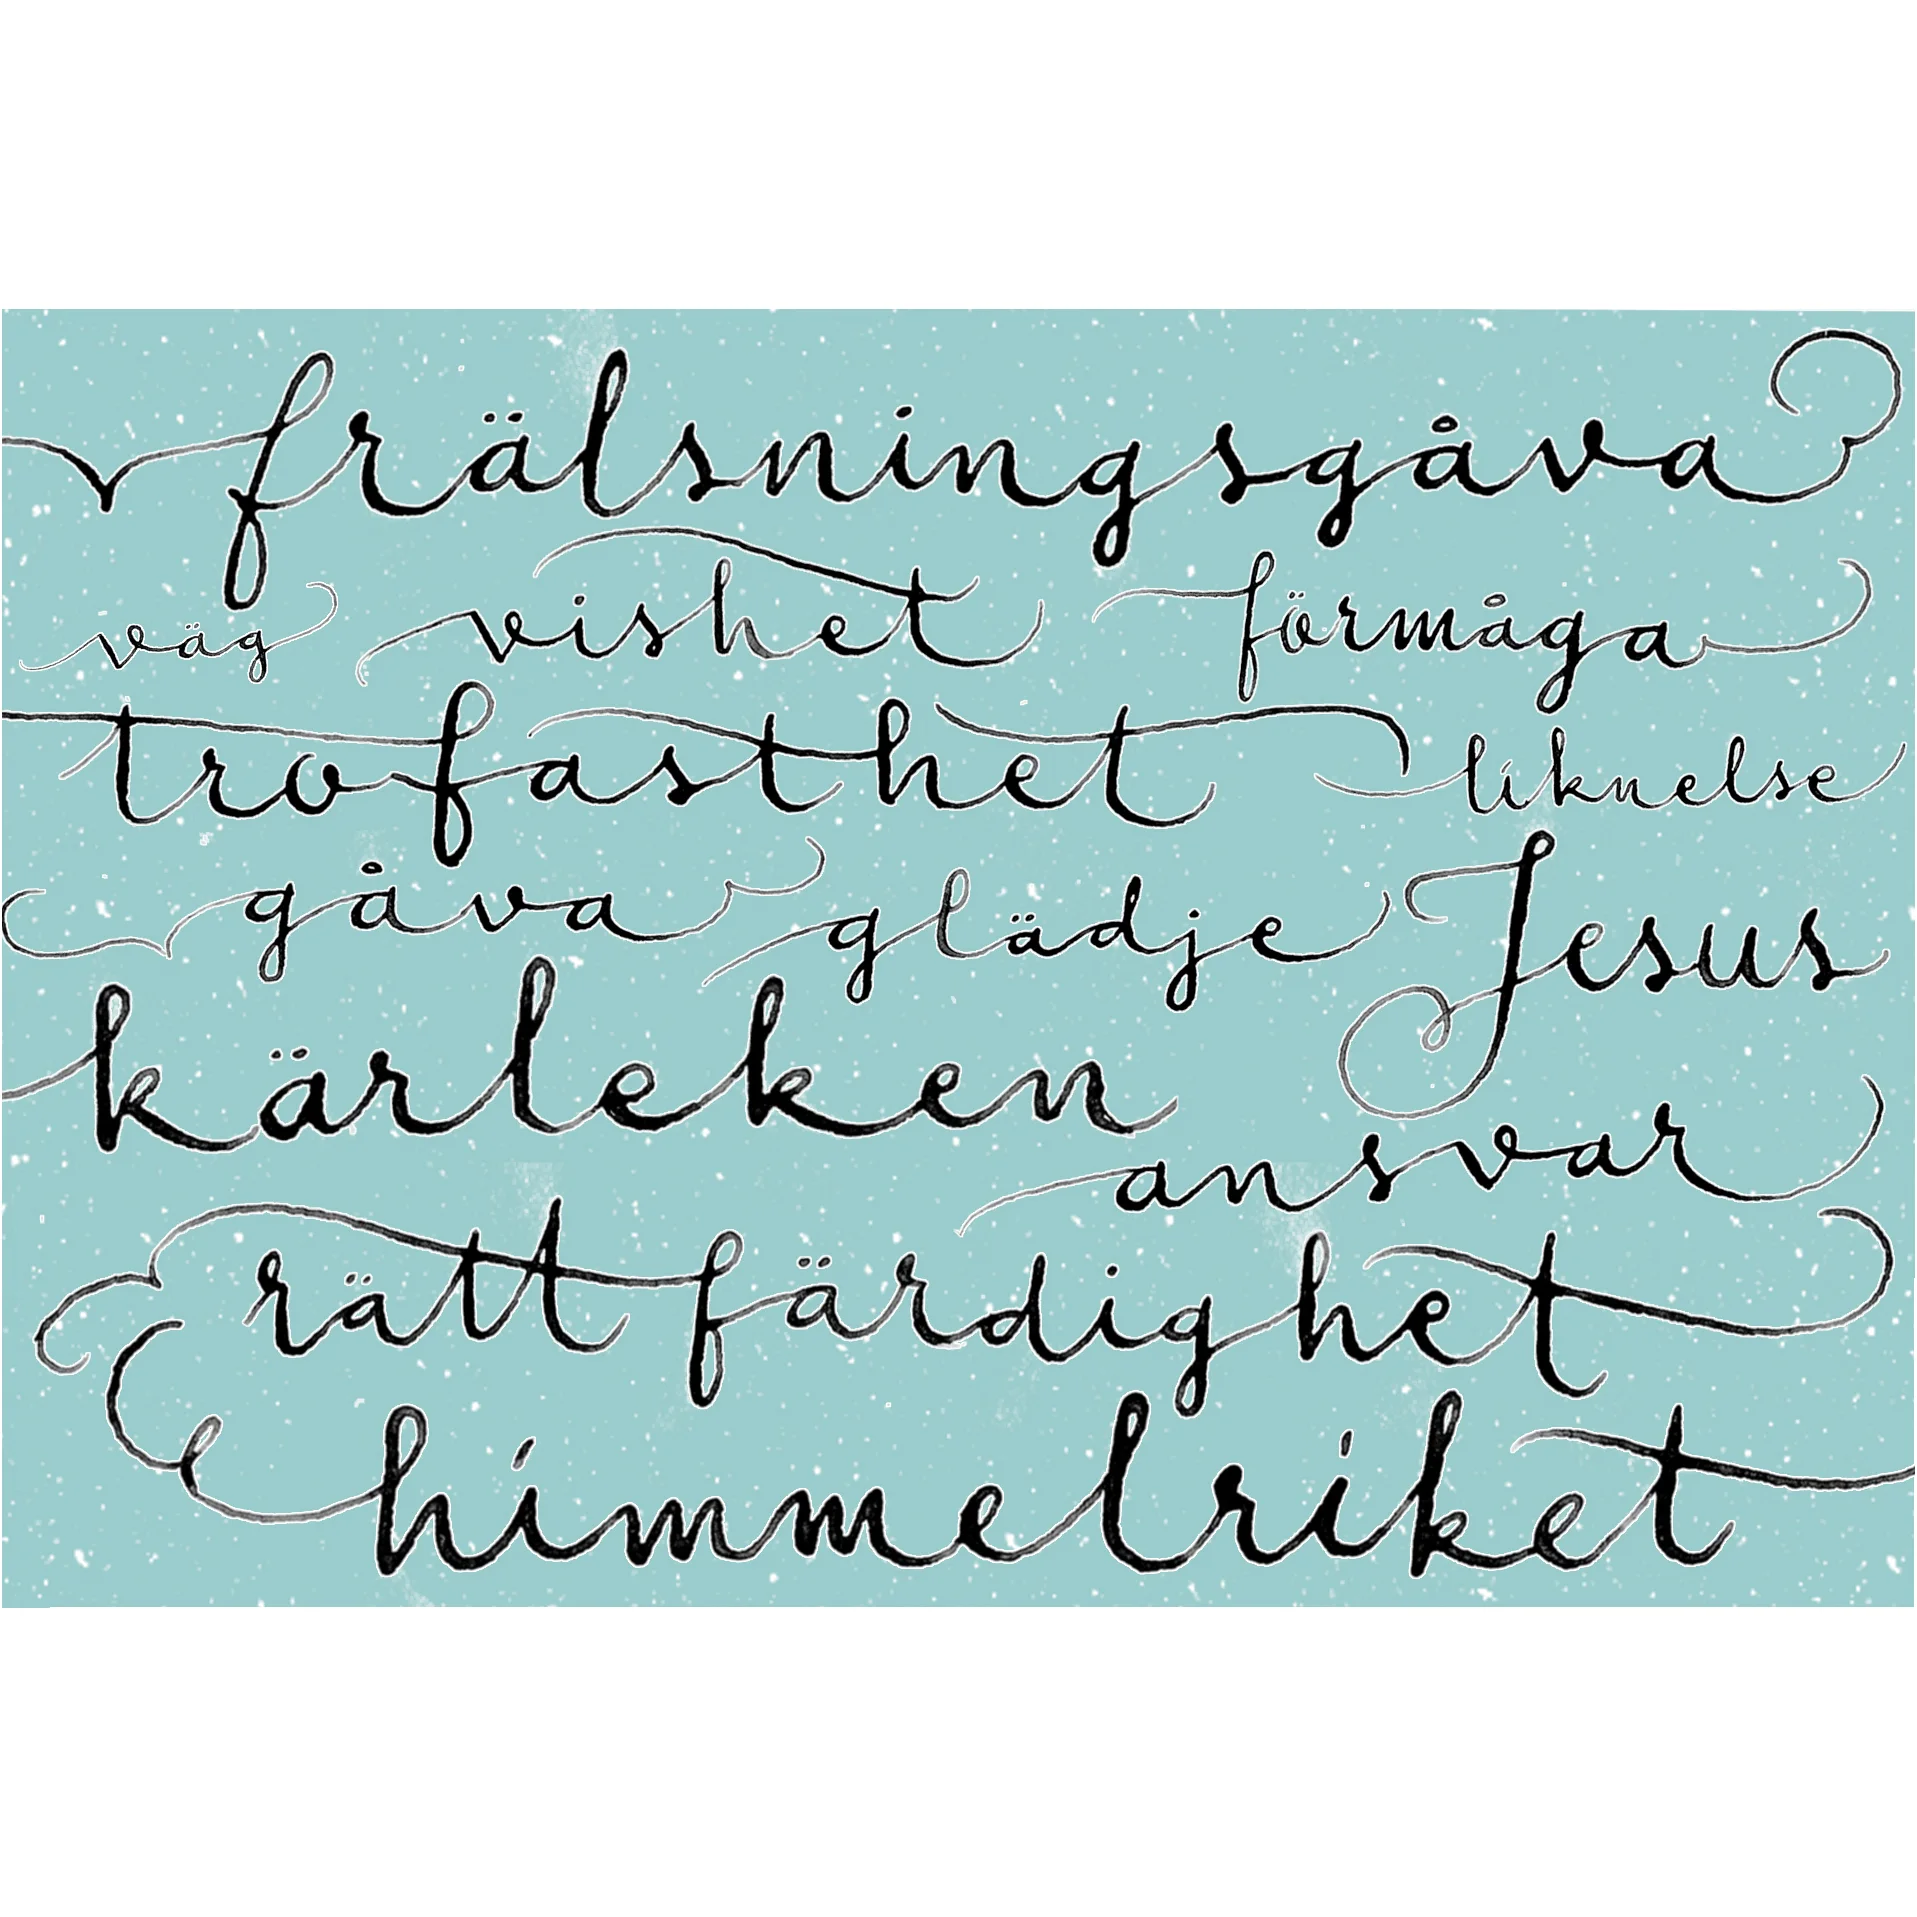 frälsningsgåva
väg vishet förmåga
trofasthet liknelse
gåva glädje Jesus
kärleken
ansvar
rättfärdighet
himmelriket